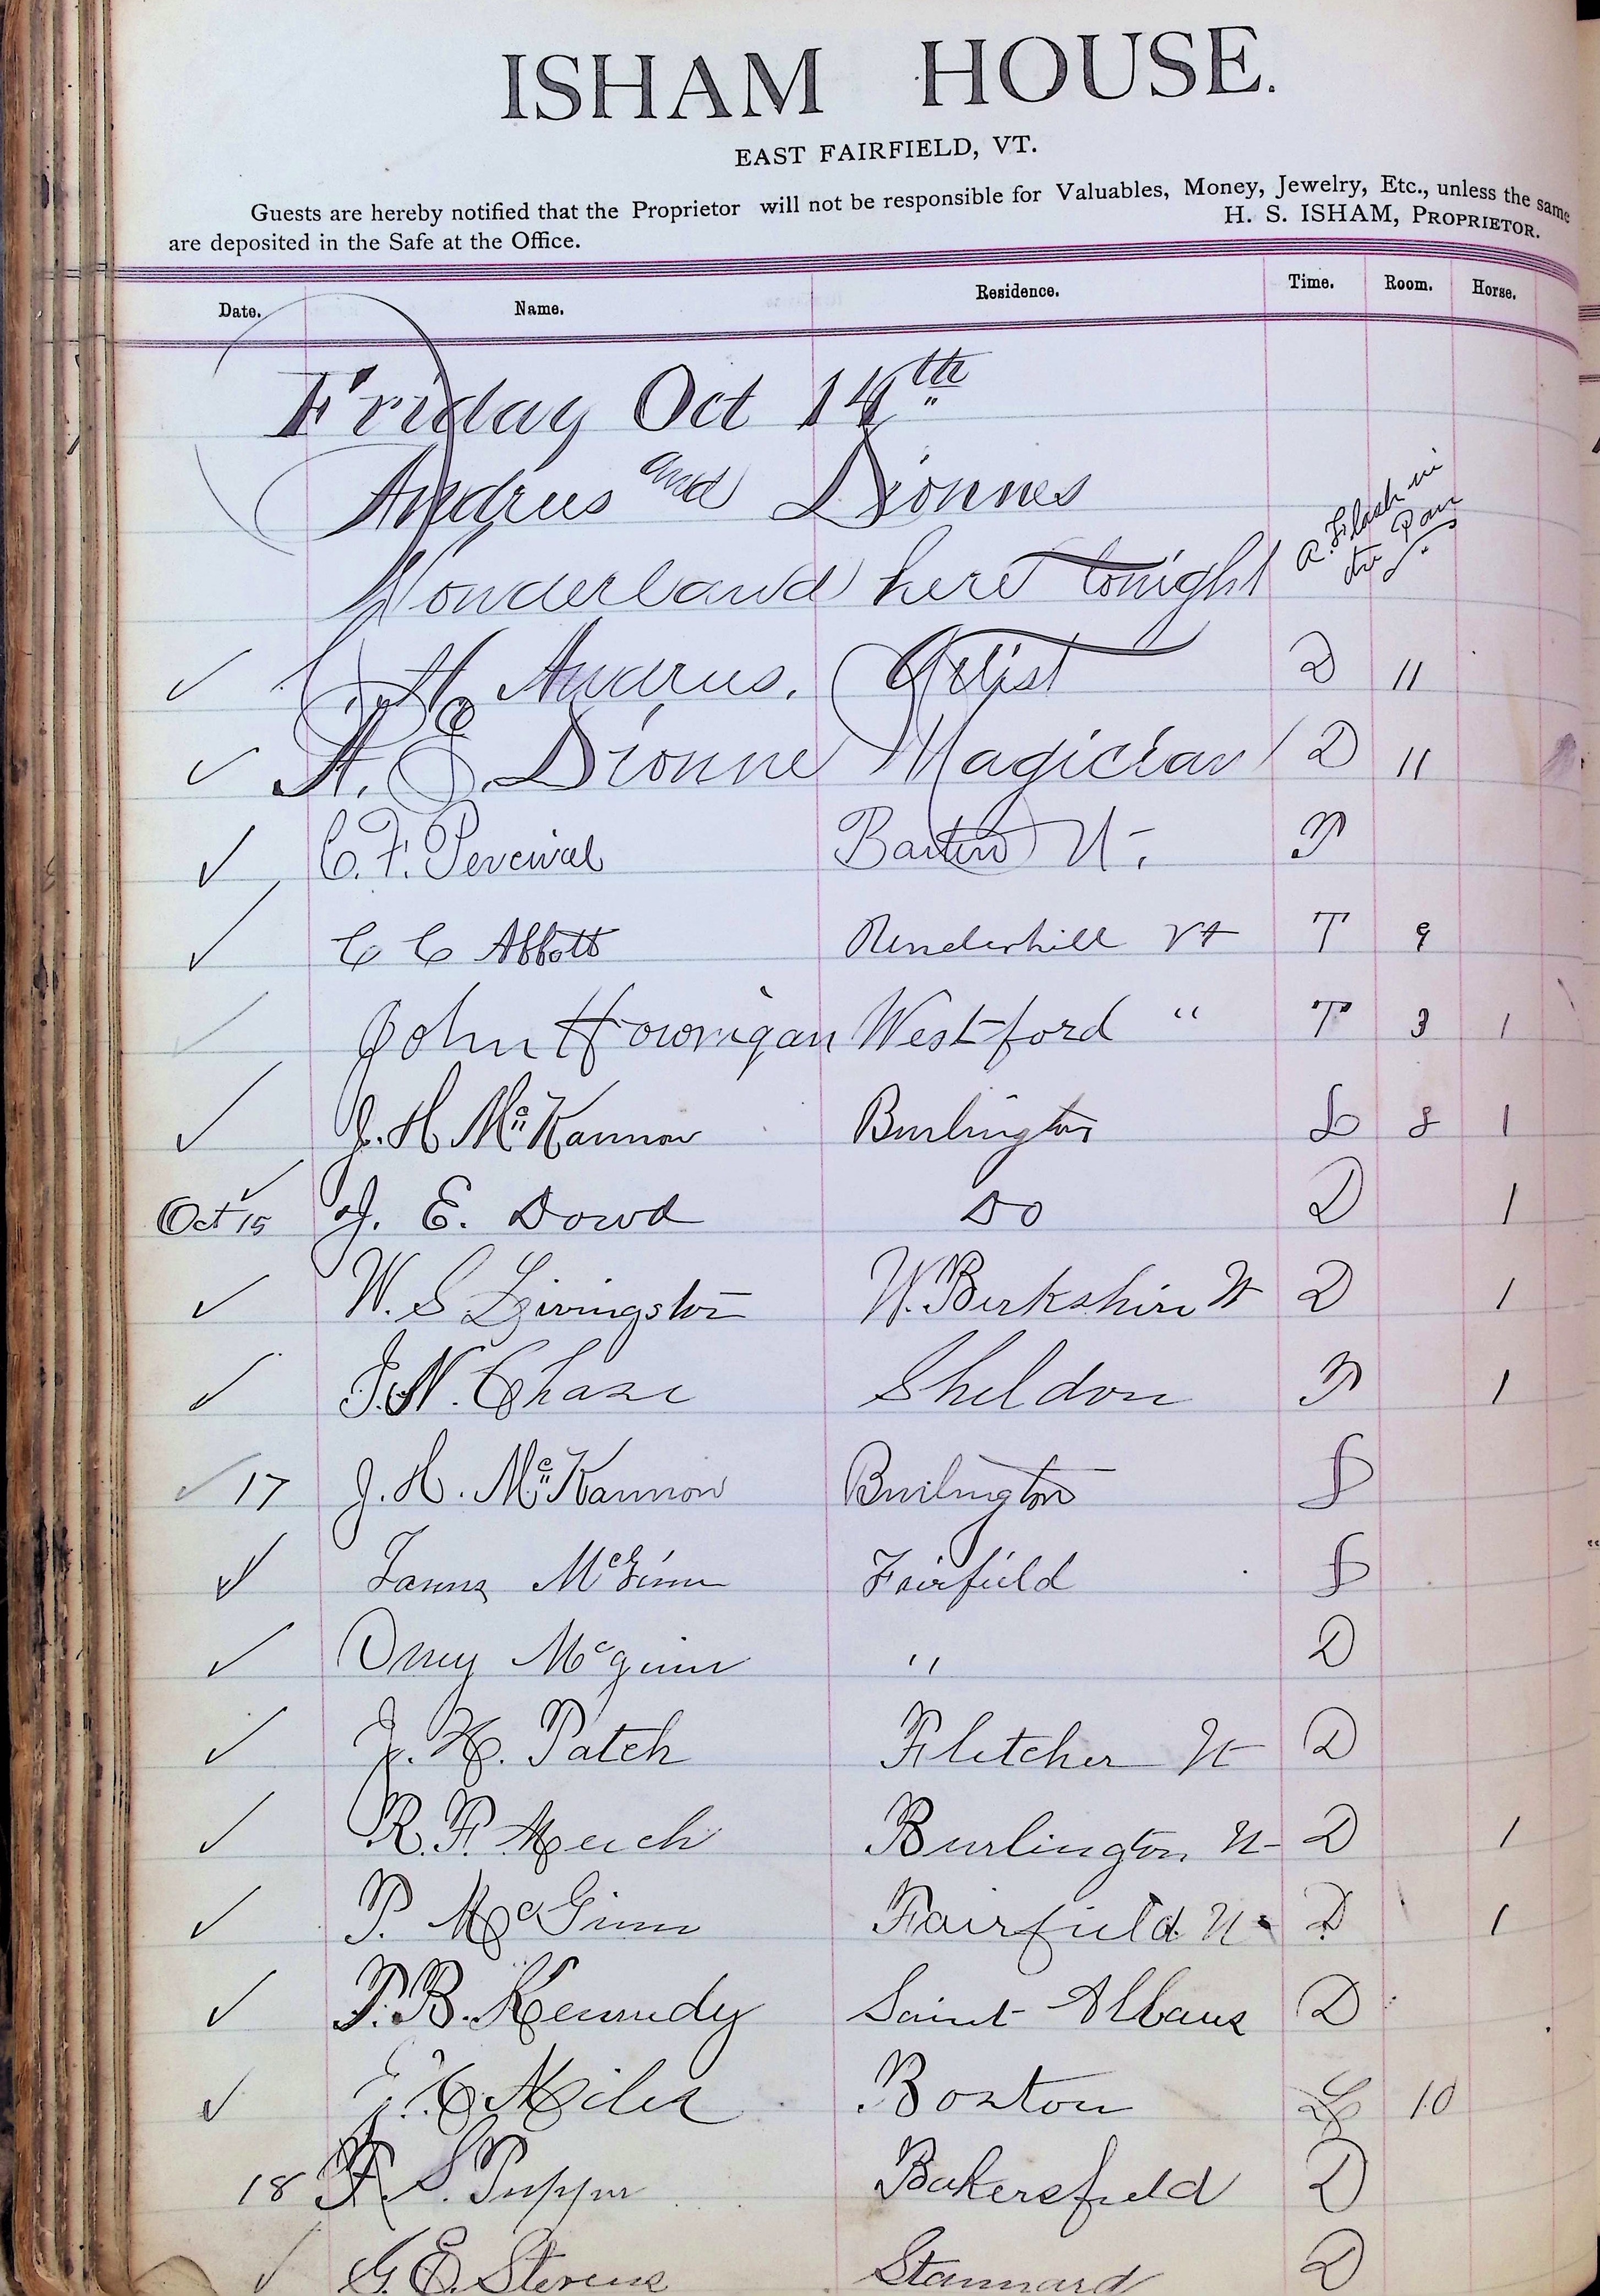 ISHAM HOUSE.
EAST FAIRFIELD, VT.
Guests are hereby notified that the Proprietor will not be responsible for Valuables, Money, Jewelry, Etc., unless the same
are deposited in the Safe at the Office.
H. S. ISHAM, PROPRIETOR.
Date. Name. Residence. Time. Room. Horse.
Friday Oct 14th
Andrus and Dionnes
A Flash in
the Pan
Wonderland here tonight
✓ H Andrus. Artist D 11
✓ A. E. Dionne Magician D 11
✓ C. F. Percival Barton Vt.
✓ C C Abbott Underhill Vt T 9
✓ John Howrigan Westford " T 3 1
✓ J. H McKannon Burlington L 8 1
✓
Oct 15 J. E. Dowd Do D 1
✓ W. S Livingston W. Berkshire Vt D 1
✓ J. N. Chase Sheldon 1
✓ 17 J. H. McKannon Burlington
✓ McGinn Fairfield
✓ McGinn " D
✓ J. H. Patch Fletcher Vt D
✓ R. F. Meech Burlington Vt D 1
✓ P. McGinn Fairfield Vt D 1
✓ P. B. Kennedy Saint Albans D
✓ Miles Boston L 10
18 F. S. Tupper Bakersfield D
✓ G. E. Stevens Stannard D